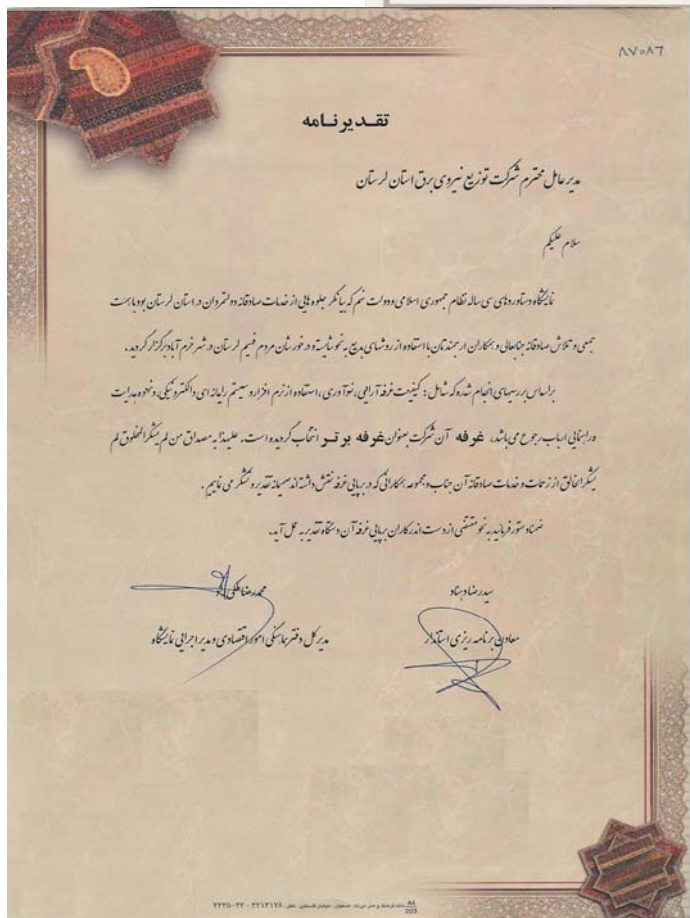 ۸۷۰۸۶
تقدیرنامه
مدیر عامل محترم شرکت توزیع نیروی برق استان لرستان
سلام علیکم
نمایشگاه دستاوردهای سی ساله نظام جمهوری اسلامی و دولت نهم که بیانگر جلوه هایی از خدمات صادقانه دولتمردان در استان لرستان بود با همت
جمعی و تلاش صادقانه جنابعالی و همکاران ارجمندتان با استفاده از روشهای بدیع به نحو شایسته و در خور شان مردم فهیم لرستان در شهر خرم آباد برگزار گردید.
براساس بررسیهای انجام شده که شامل : کیفیت غرفه آرایی، نوآوری، استفاده از نرم افزار و سیستم رایانه ای و الکترونیکی، و نحوه هدایت
و راهنمایی ارباب رجوع می باشد، غرفه آن شرکت بعنوان غرفه برتر انتخاب گردیده است. علیهذا به مصداق من لم یشکر المخلوق لم
یشکر الخالق از زحمات و خدمات صادقانه آن جناب و مجموعه همکارانی که در برپایی غرفه نقش داشته اند صمیمانه تقدیر و تشکر می نماییم.
ضمنا دستور فرمایید به نحو مقتضی از دست اندرکاران برپایی غرفه آن دستگاه تقدیر به عمل آید.
سیدرضا دهناد
معاون برنامه ریزی استاندار
محمدرضا
مدیرکل دفتر هماهنگی امور اقتصادی و مدیر اجرایی نمایشگاه
A4
203
۲۲۱۳۱۷۶ - ۲۲۲۵۰۲۲